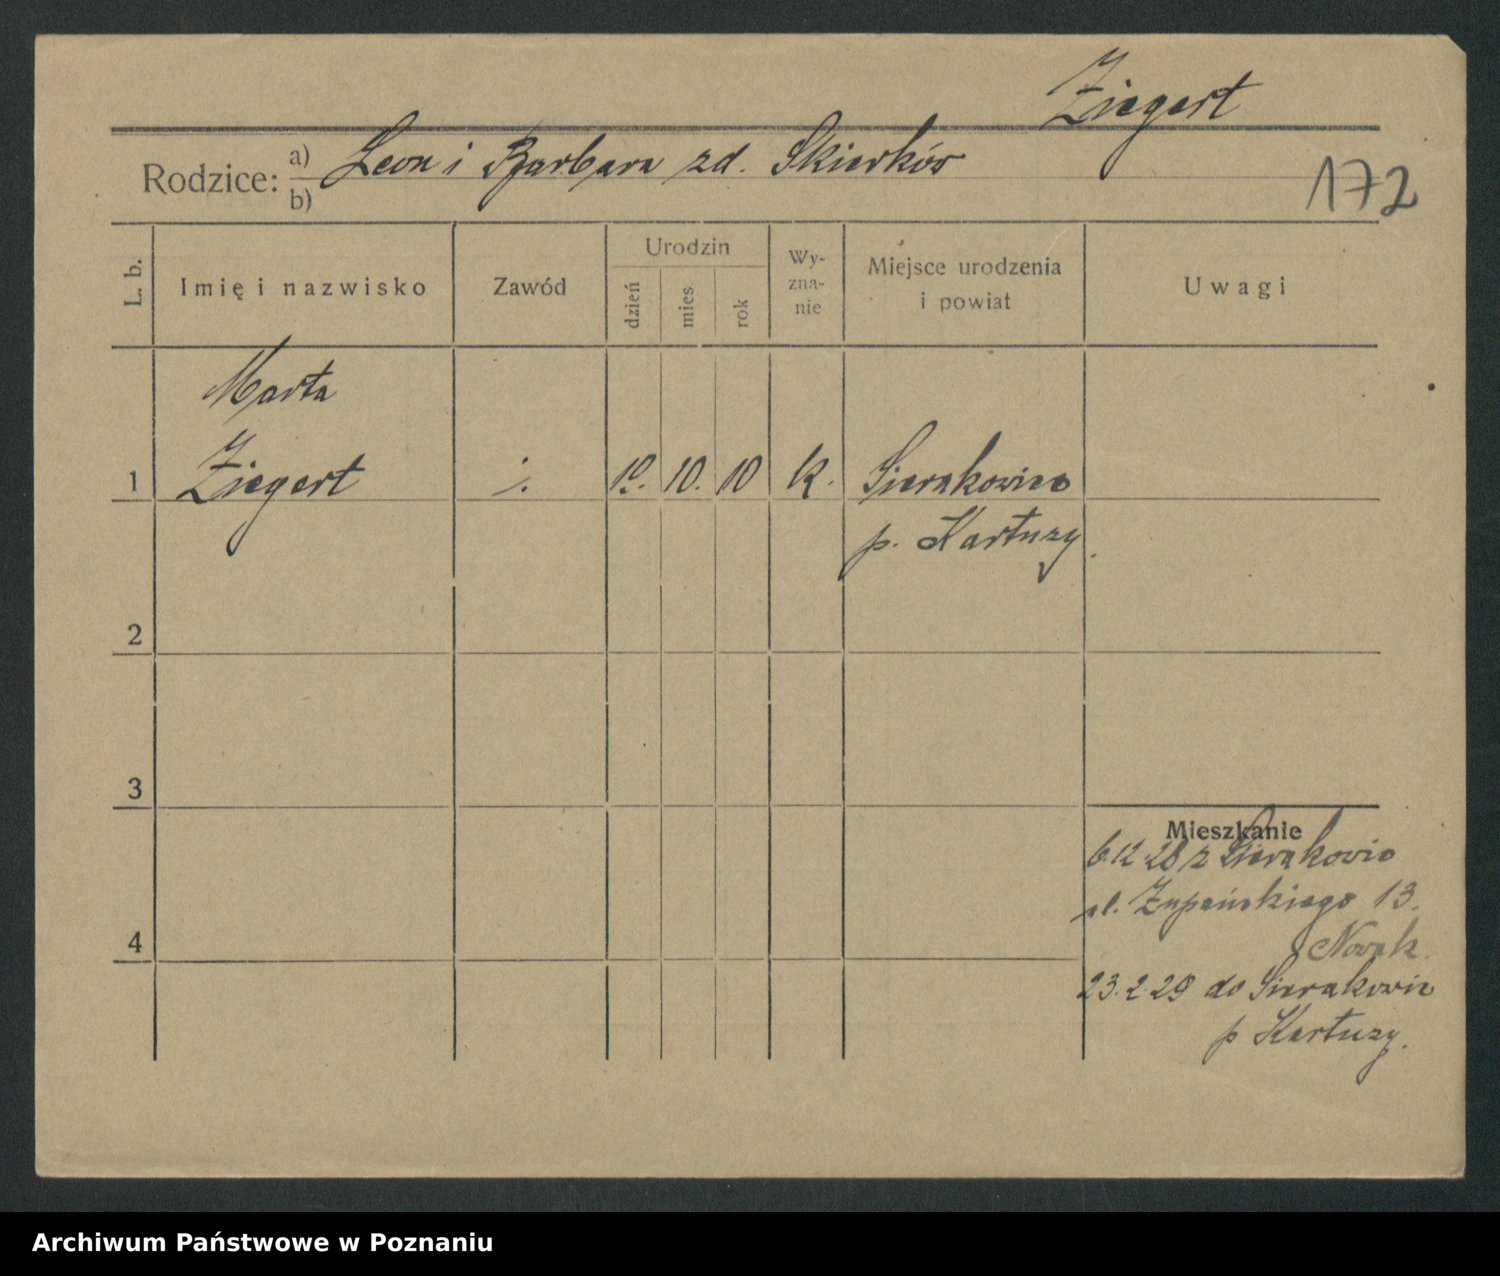 Ziegert
Rodzice: a) Leon i Barbara zd. Skierków
b)
172
L. b. Imię i nazwisko Zawód Urodzin dzień mies rok Wy-zna-nie Miejsce urodzenia i powiat Uwagi
Marta
1 Ziegert ./. 10. 10. 10 k. Sierakowice
p. Kartuzy.
2
3
Mieszkanie
6.12.28 z Sierakowic
ul. Żupańskiego 13.
4
Nowak.
23.2.29 do Sierakowic
p Kartuzy.
Archiwum Państwowe w Poznaniu